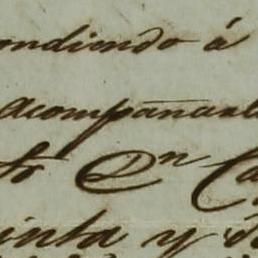 ondiendo á
acompañarl
to Dn Ca
inta y